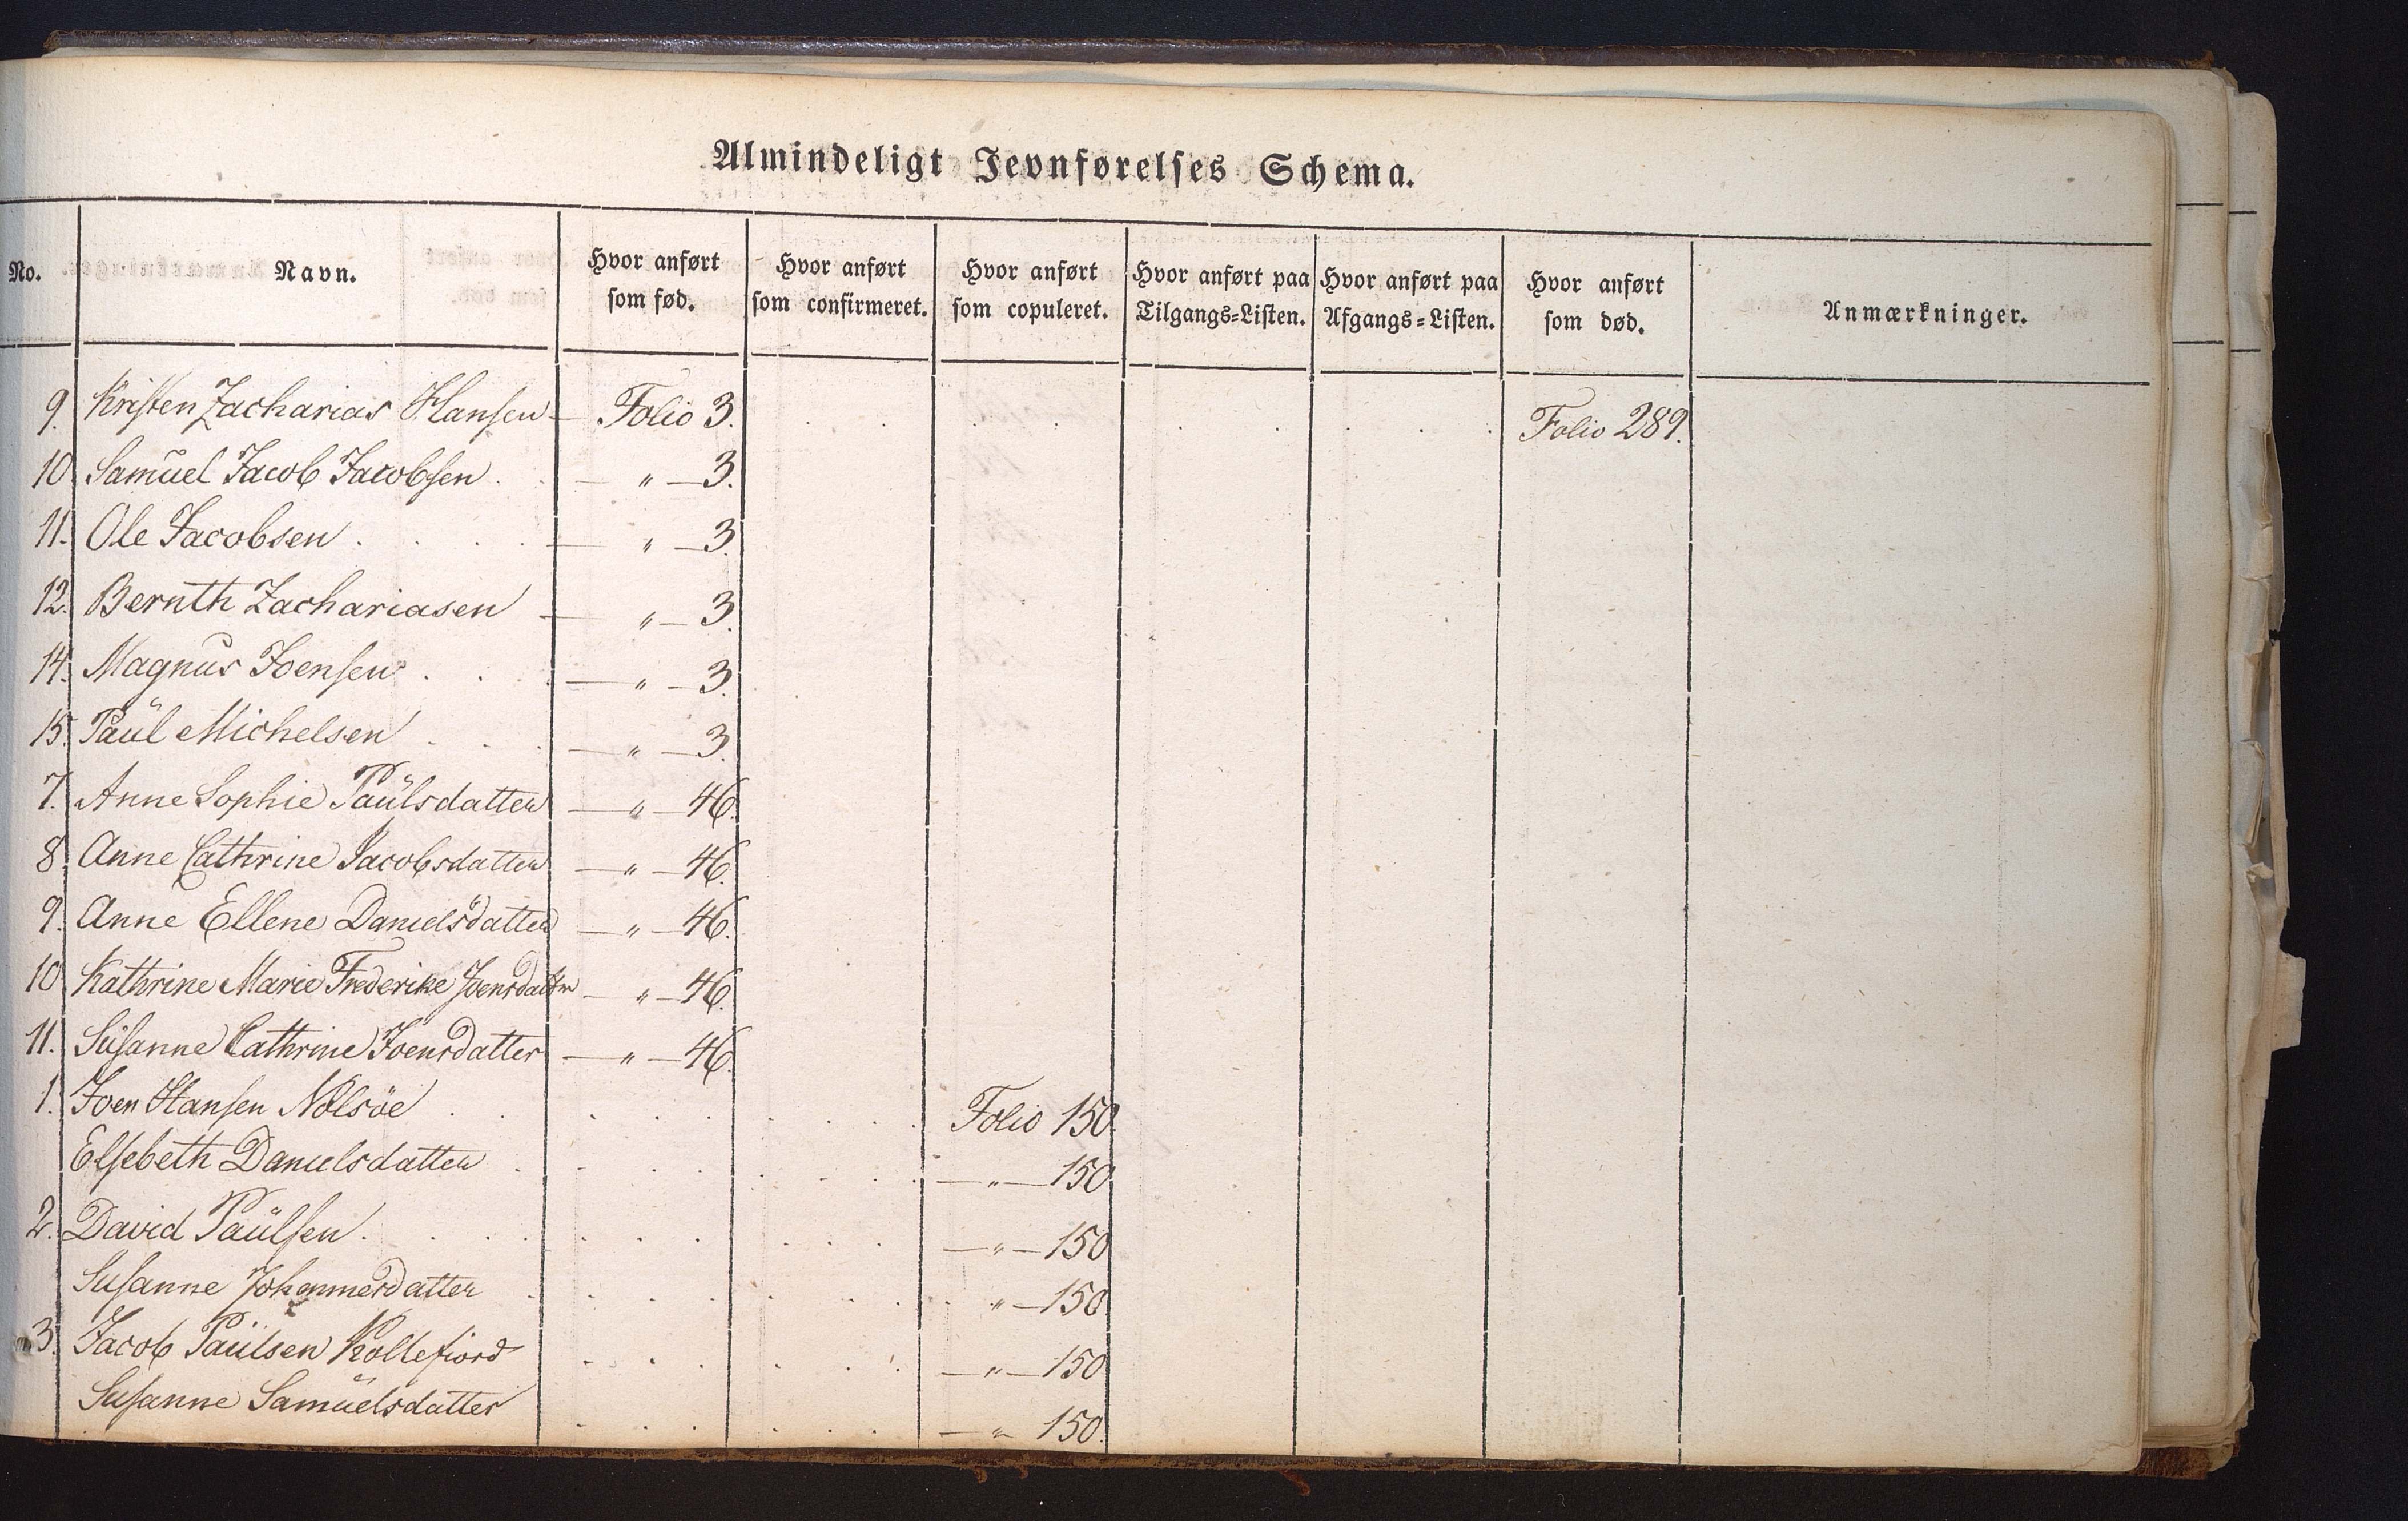 Almindeligt Jevnførelses Schema.
No. Navn. Hvor anført som fød. Hvor anført som confirmeret. Hvor anført som copuleret. Hvor anført paa Tilgangs=Listen. Hvor anført paa Afgangs=Listen. Hvor anført som død. Anmærkninger.
9. Kristen Zacharias Hansen — Folio 3. Folio 289.
10. Samuel Jacob Jacobsen — " — 3.
11. Ole Jacobsen — " — 3.
12. Bernth Zachariasen — " — 3.
14. Magnus Joensen — " — 3.
15. Paul Michelsen — " — 3.
7. Anne Sophie Paulsdatter — " — 46.
8. Anne Cathrine Jacobsdatter — " — 46.
9. Anne Ellene Danielsdatter — " — 46.
10 Kathrine Marie Frederike Joensdatter — " — 46.
11. Susanne Cathrine Joensdatter — " — 46.
1. Joen Hansen Nolsöe Folio 150.
Elsebeth Danielsdatter — " — 150
2. David Paulsen — " — 150
Susanne Johannesdatter " — 150
3. Jacob Paulsen Kollefiord — " — 150
Susanne Samuelsdatter — " 150.